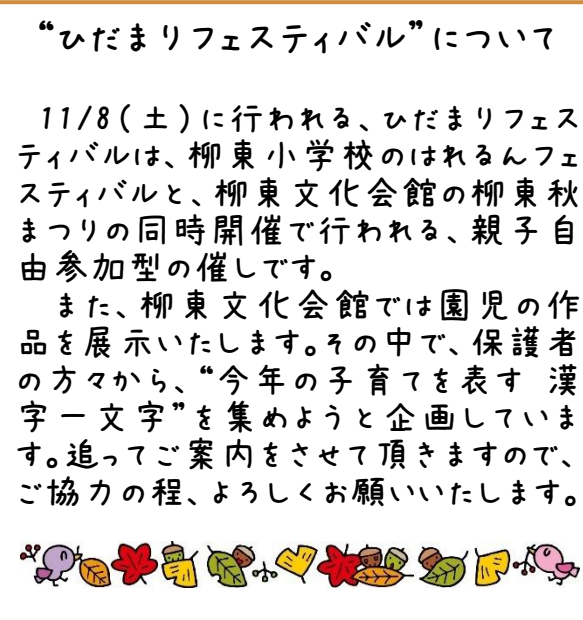 “ひだまりフェスティバル”について
11/8(土)に行われる、ひだまりフェス
ティバルは、柳東小学校のはれるんフェ
スティバルと、柳東文化会館の柳東秋
まつりの同時開催で行われる、親子自
由参加型の催しです。
また、柳東文化会館では園児の作
品を展示いたします。その中で、保護者
の方々から、“今年の子育てを表す 漢
字一文字”を集めようと企画していま
す。追ってご案内をさせて頂きますので、
ご協力の程、よろしくお願いいたします。